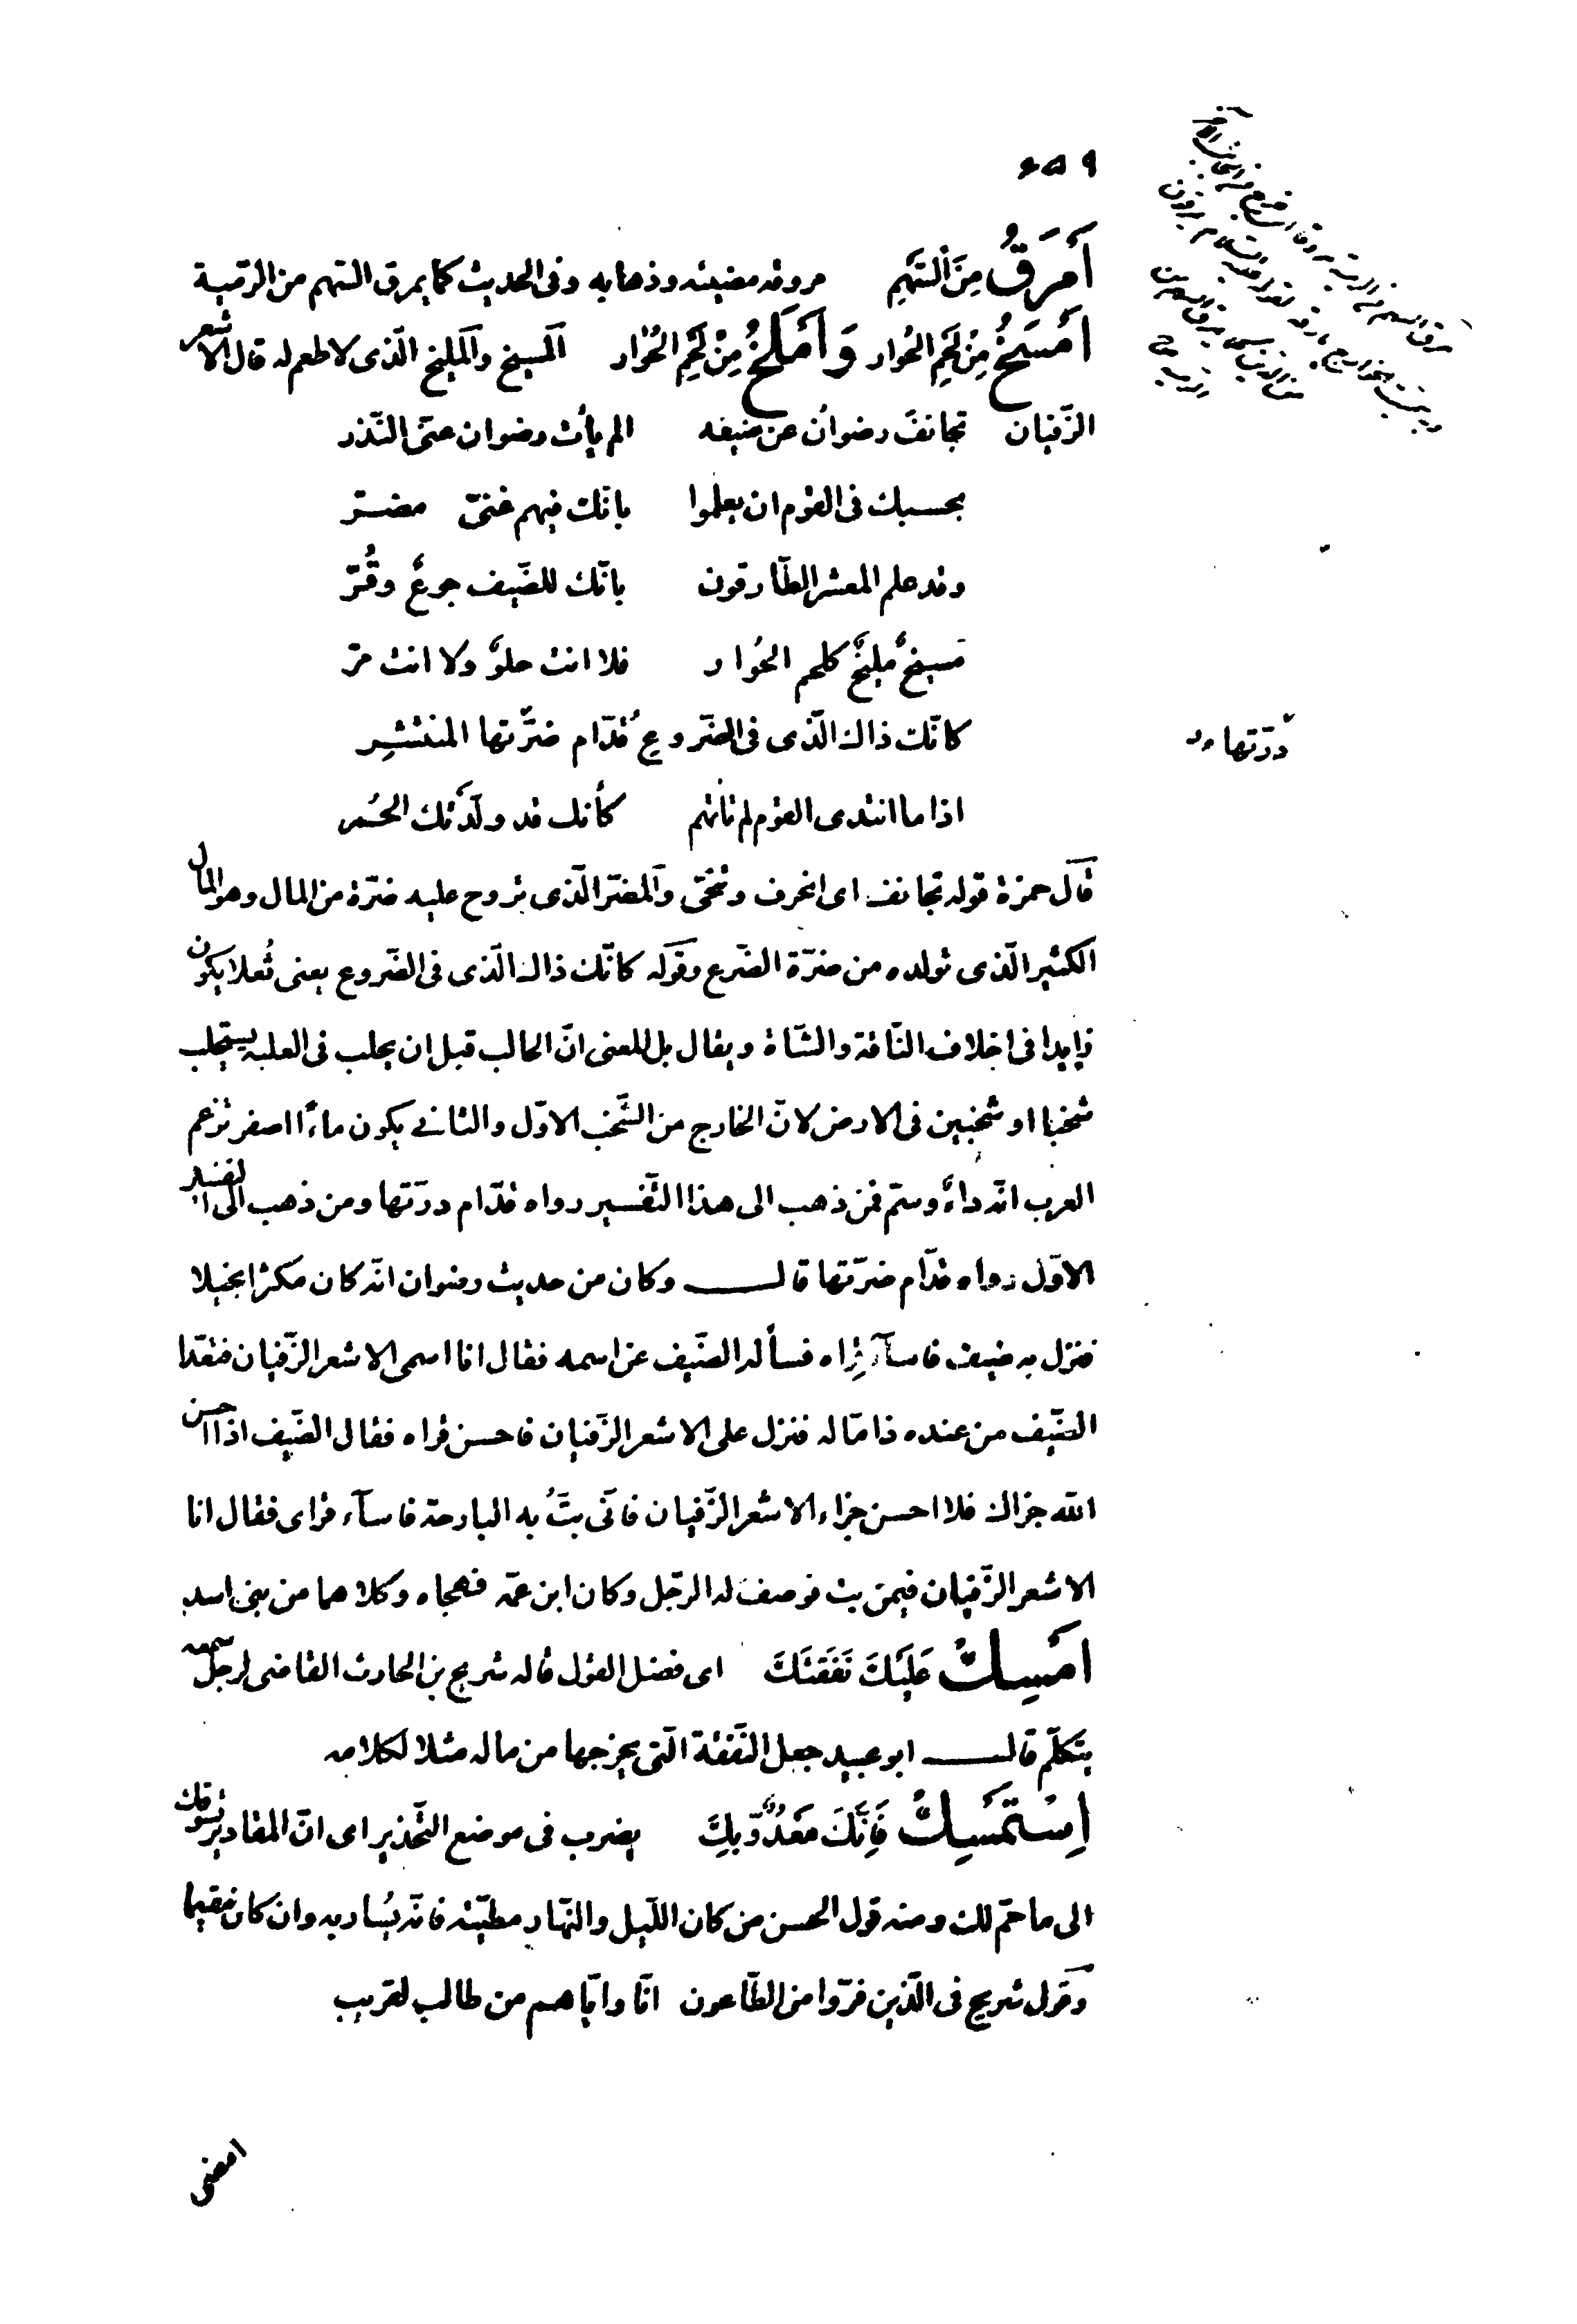 ۶۵۹
أَمْرَقُ مِنَ السَّهْمِ مروقه مضيئه وذهابه وفى الحديث كما يمرق السّهم من الرّميّة
أَمْسَخُ مِنْ لَحْمِ الحُوار وَأَمْلَخُ مِنْ لَحْمِ الحُوَار المَسيخ والمَليخ الّذى لا طعم له قال الاشعر
الزّفيان تجانفَ رضوانُ عن ضيفه الم يأت رضوان عنّى النّذر
بحسبك فى القوم ان يعلموا بانّك فيهم غنىّ مضرّ
وقد علم المعشر الطّارقون بانّك للضّيف جوعٌ وقُرّ
مَسيخٌ مليخٌ كلحم الحُوار فلا انت حلوٌ ولا انت مرّ
كانّك ذاك الّذى فى الضّروعِ قُدّام ضرّتها المنتشِر
درّتها
اذا ما انتدى القوم لم تاتهم كأنك قد ولّدَتك الحُمر
قال حمزة قوله تجانف اى انحرف وتنحّى والمضرّ الّذى تروح عليه ضرّة من المال وهو المال
الكثير الّذى تولده من ضرّة الضّرع وقوله كانّك ذاك الّذى فى الضّروع يعنى ثُعلا يكون
زايدا فى اخلاف النّاقة والشّاة ويقال بل المعنى انّ الحالب قبل ان يحلب فى العلبه يستحلب
شخبا او شخبين فى الارض لانّ الخارج من الشّخب الاوّل والثانى يكون ماءً اصفر تزعم
العرب انّه داءٌ وسمّ فمن ذهب الى هذا التّفسير رواه قدّام درّتها ومن ذهب الى التفسير
الاوّل رواه قدّام ضرّتها قال وكان من حديث رضوان انّه كان مكثرا بخيلا
فنزل به ضيف فاسآء قِراه فسأله الضّيف عن اسمه فقال انا اسمى الاشعر الزّفيان فغدا
الضّيف من عنده ذامّا له فنزل على الاشعر الزّفيان فاحسن قراه فقال الضّيف اذا احسن
الله جزاك فلا احسن جزاء الاشعر الزّفيان فانّى بتُّ به البارحة فاسآء قراى فقال انا
الاشعر الزّفيان فبمن بت فوصف له الرّجل وكان ابن عمّه فهجاه وكلاهما من بنى اسد
امْسِكْ عَلَيْكَ نَفَقَتَكَ اى فضل القول قاله شريح بن الحارث القاضى لرجل سمعه
يتكلّم قال ابو عبيد جعل النّفقة الّتى يخرجها من ماله مثلا لكلامه
اِسْتَمْسِكْ فَاِنَّكَ مَعْدُوٌّ بِكَ يضرب فى موضع التّحذير اى انّ المقادير تسوقك
الى ما حمّ لك ومنه قول الحسن من كان اللّيل والنّهار مطيّته فانّه يُسار به وان كان مقيما
وقول شريح فى الّذين فرّوا من الطّاعون انّا وايّاهم من طالب لقريب
امضى